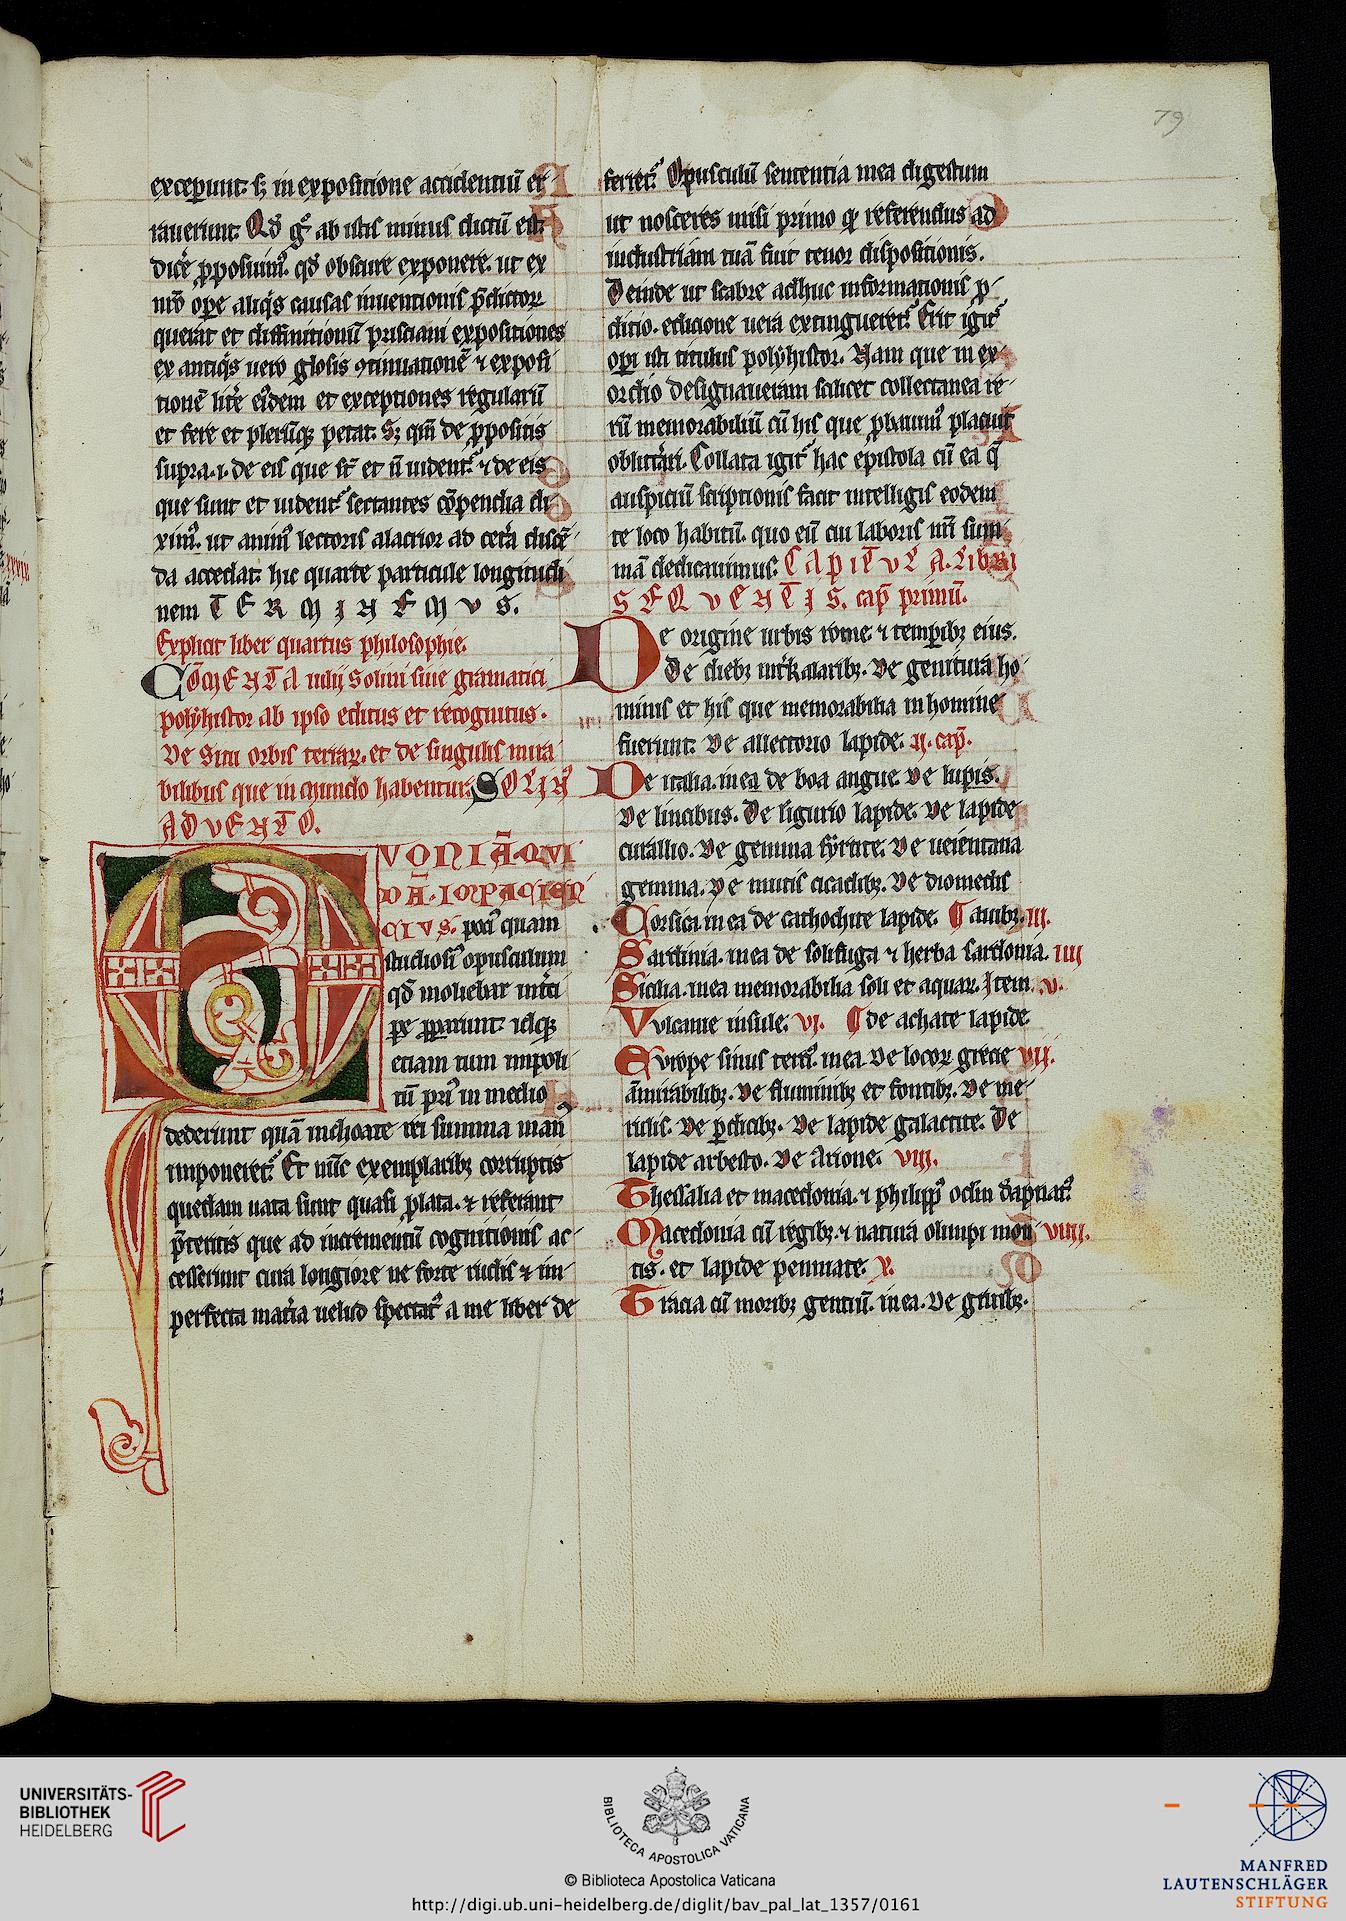 79
excepiunt. sȝ in expositione accidentiū er
rauerunt. Qđ gͦ ab istis minus dictū est.
dicē p̱posuimꝰ. qđ obscure exponere. ut ex
nr̄o ope aliqͥs causas inuentionis p̄dictoꝝ
querat et diffinitionū prisciani expositiones
ex antiqͥs uero glosis ꝯtinuationē ⁊ exposi
tionē litē eīdem et exceptiones regularū
et fere et plerūqꝫ petat. Sȝ qm̄ de p̱positis
supra .i. de eis que sc̄t et n̄ uident̄ ⁊ de eis
que sunt et uident̄ sectantes cōpendia di
ximꝰ. ut animꝰ lectoris alacrior ad cet̄a discē
da accedat. hic quarte particule longitudi
nem TERMINEMVS.
Explicit liber quartus philosophie.
COM̄ENTA iulij Solini siue gramatici
polẏhistor ab ipso editus et recognitus.
De Situ orbis terraꝝ. et de singulis mira
bilibus que in mundo habentur. SOLINꝰ
ADVENTO.
QVONIĀ QVI
DĀ. IMPACIEN
CIVS. pociꝰ quam
studiosiꝰ opusculum
qđ moliebar int̄ci
pe pparunt. idqꝫ
etiam tum impoli
tū prꝰ in medio
dederunt quā inchoare rei summa manꝰ
imponeret̄. Et nūc exemplaribꝫ corruptis
quedam uata sunt quasi p̱lata. ⁊ referant
p̄teritis que ad incrementū cognitionis ac
cesserunt cura longiore ne forte rudis ⁊ im
perfecta mat̄ia uelud spectat̄ a me liber de
ferret̄. Opusculū sententia mea digestum
ut nosceres misi primo qꝫ referendus ad
industriam tuā fuit tenor dispositionis.
Deinde ut scabre adhuc informationis p̱
ditio. edicione uera extingueret̄. Erit igit̄
opi isti titulus polẏhistor. Nam que in ex
ordio designaueram scilicet collectanea re
rū memorabiliū cū his que plurimꝰ placuit
oblitt̄ari. Collata igit̄ hac epistola cū ea q̄
auspiciū scriptionis facit intelligis eodem
te loco habitū. quo eū cui laboris nr̄i sum
mā dedicauimus. CAPITVLA. LIBRI
SEQVENTIS. cap̄ primū.
De origine urbis rome ⁊ temporibꝫ eius.
De diebꝫ int̄kalaribꝫ. De genitura ho
minis et his que memorabilia in homine
fuerunt. De allectorio lapide. II. cap̄.
De italia. in ea de boa angue. De lupis.
De lincibus. De ligurio lapide. De lapide
curallio. De gemma sẏrtite. De ueientana
gemma. De mutis cicadibꝫ. De diomedis
Corsica in ea de cathochite lapide. ¶ auibꝫ. III.
Sardinia. in ea de solifuga ⁊ herba sardonia. IIII
Sicilia. in ea memorabilia soli et aquaꝝ. Item. V.
Vulcanie insule. VI. ¶ de achate lapide.
Europe sinus terciꝰ. in ea. De locoꝝ grecie VII.
āmirabilibꝫ. De fluminibꝫ et fontibꝫ. De me
rulis. De p̱dicibꝫ. De lapide galactite. De
lapide arbesto. De Arione. VIII.
Thessalia et macedonia. ⁊ philippꝰ oclm̄ dāpnat̄.
Macedonia cū regibꝫ. ⁊ natura olimpi mon VIIII.
tis. et lapide penniate. X.
Tracia cū moribꝫ gentiū. in ea. De gruibꝫ.
UNIVERSITÄTS-
BIBLIOTHEK
HEIDELBERG
BIBLIOTECA APOSTOLICA VATICANA
© Biblioteca Apostolica Vaticana
http://digi.ub.uni-heidelberg.de/diglit/bav_pal_lat_1357/0161
MANFRED
LAUTENSCHLÄGER
STIFTUNG